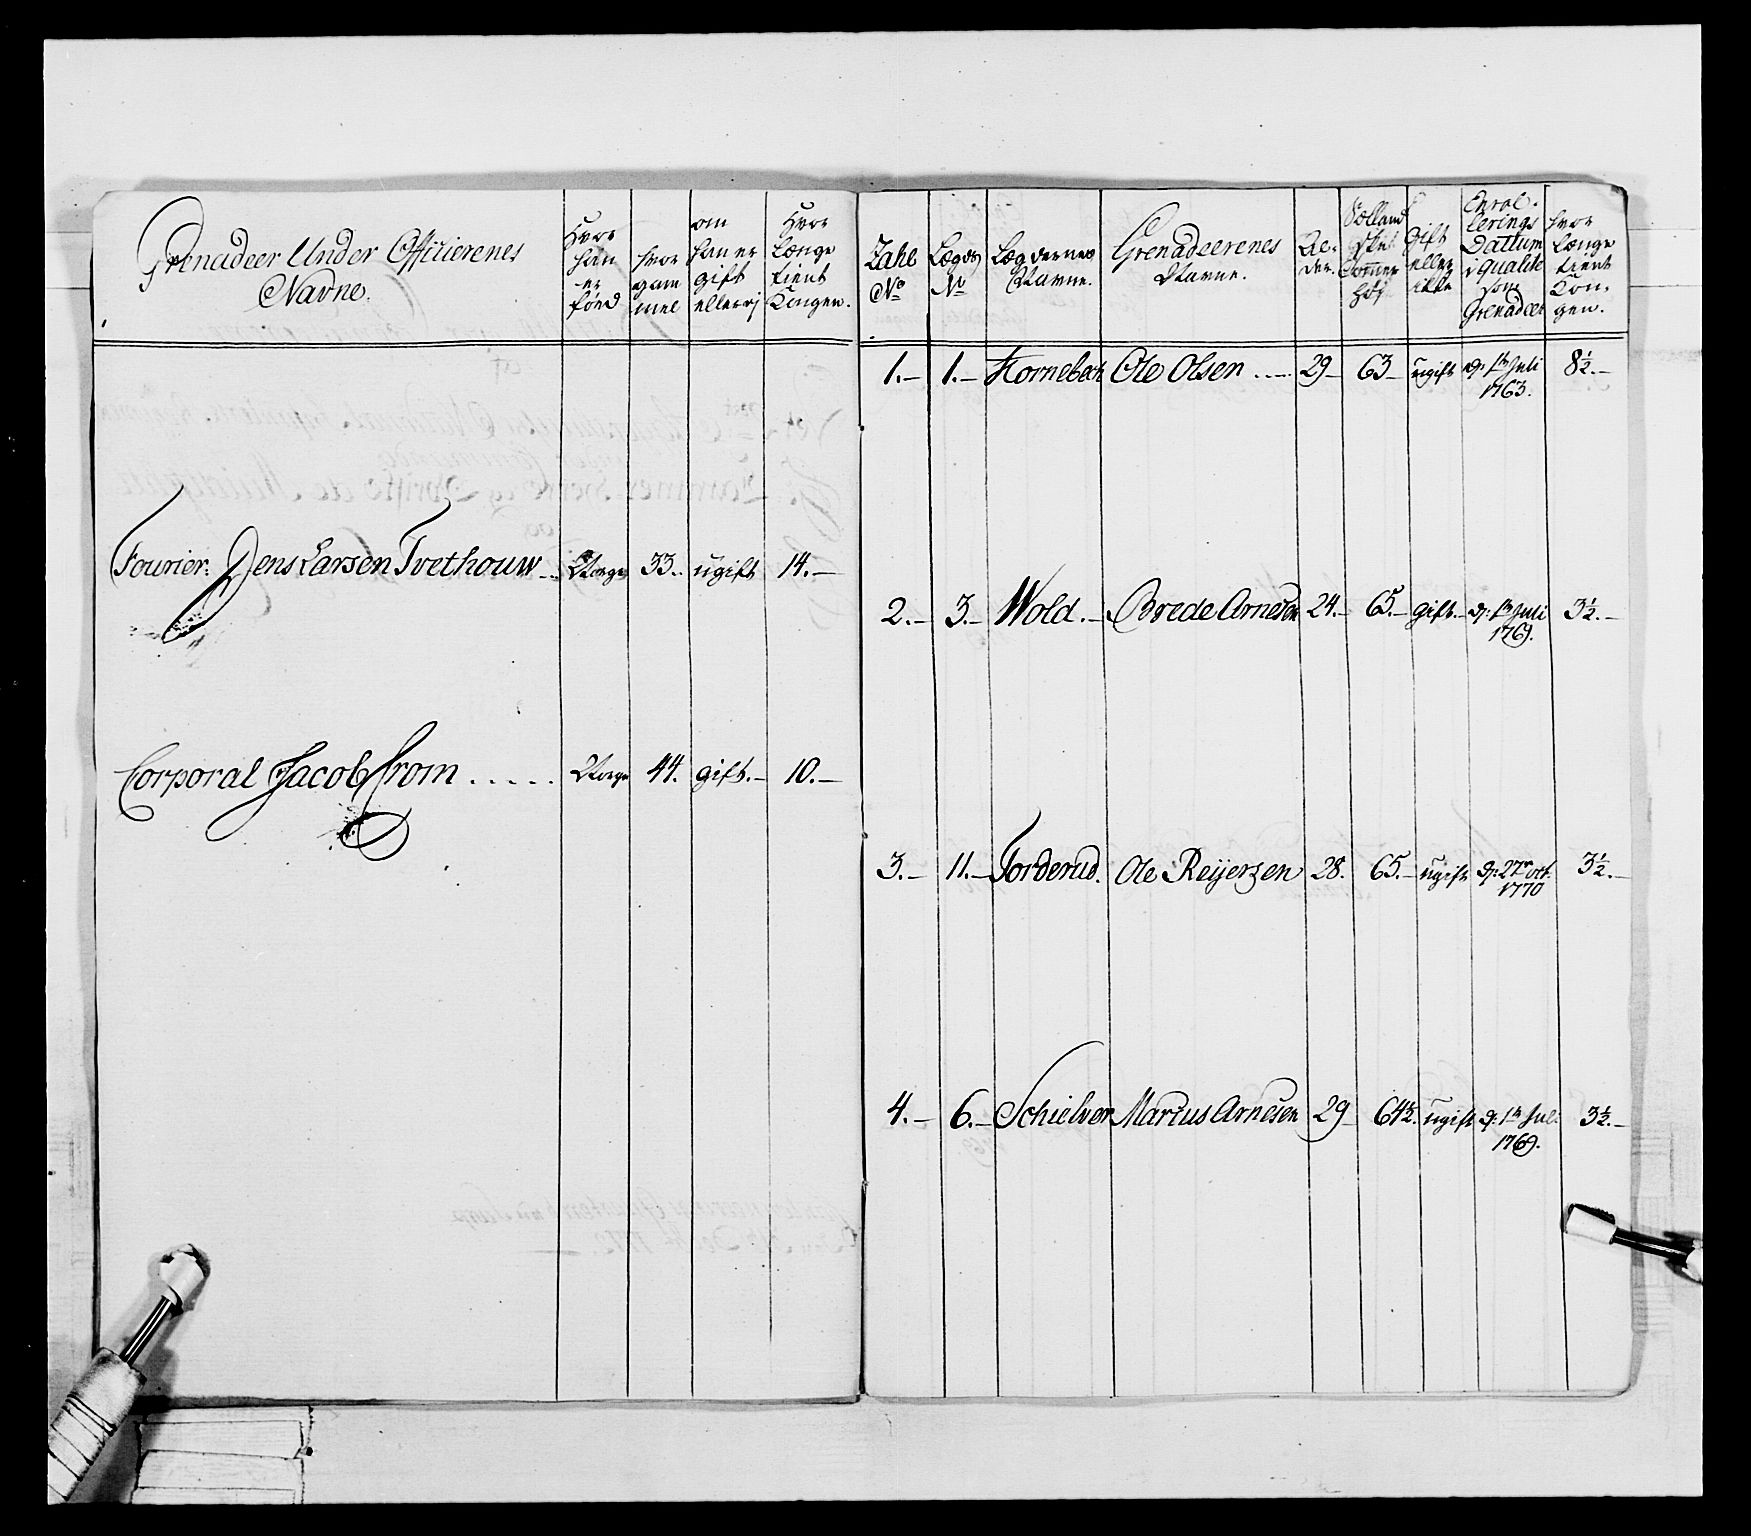 Grenadeer Under Officierenes
Navne.
Hvor
han
er
föed
hvor
gam
mel
om
han er
gift
eller ej
Hvor
Længe
tient
Kongen.
Fourier: Jens Larsen Tvethouw Norge 33. ugift 14.
Corporal Jacob From Norge 44. gift. 10.
Zahl
No
Lægds
No
Lægdernes
Navne.
Grenadeerenes
Navne.
Al-
der.
Gift
eller
ikke
Enrol-
lerings
Dattum
i qualite
som
Grenadeer
hvor
længe
tient
Kon-
gen.
1. 1. Hornebech Ole Olsen 29 63 ugift d. 1te Juli 8½.
1763.
2. 3. Wold. Brede Arnesen 24. 65. gift. d. 1te Juli 3½.
1769.
3. 11. Torderud. Ole Reijersen 28. 65. ugift d. 27de oct. 3½.
1770
4. 6. Schielver Marius Arnesen 29 64½. ugift d. 1te Jul: 3½.
1769.